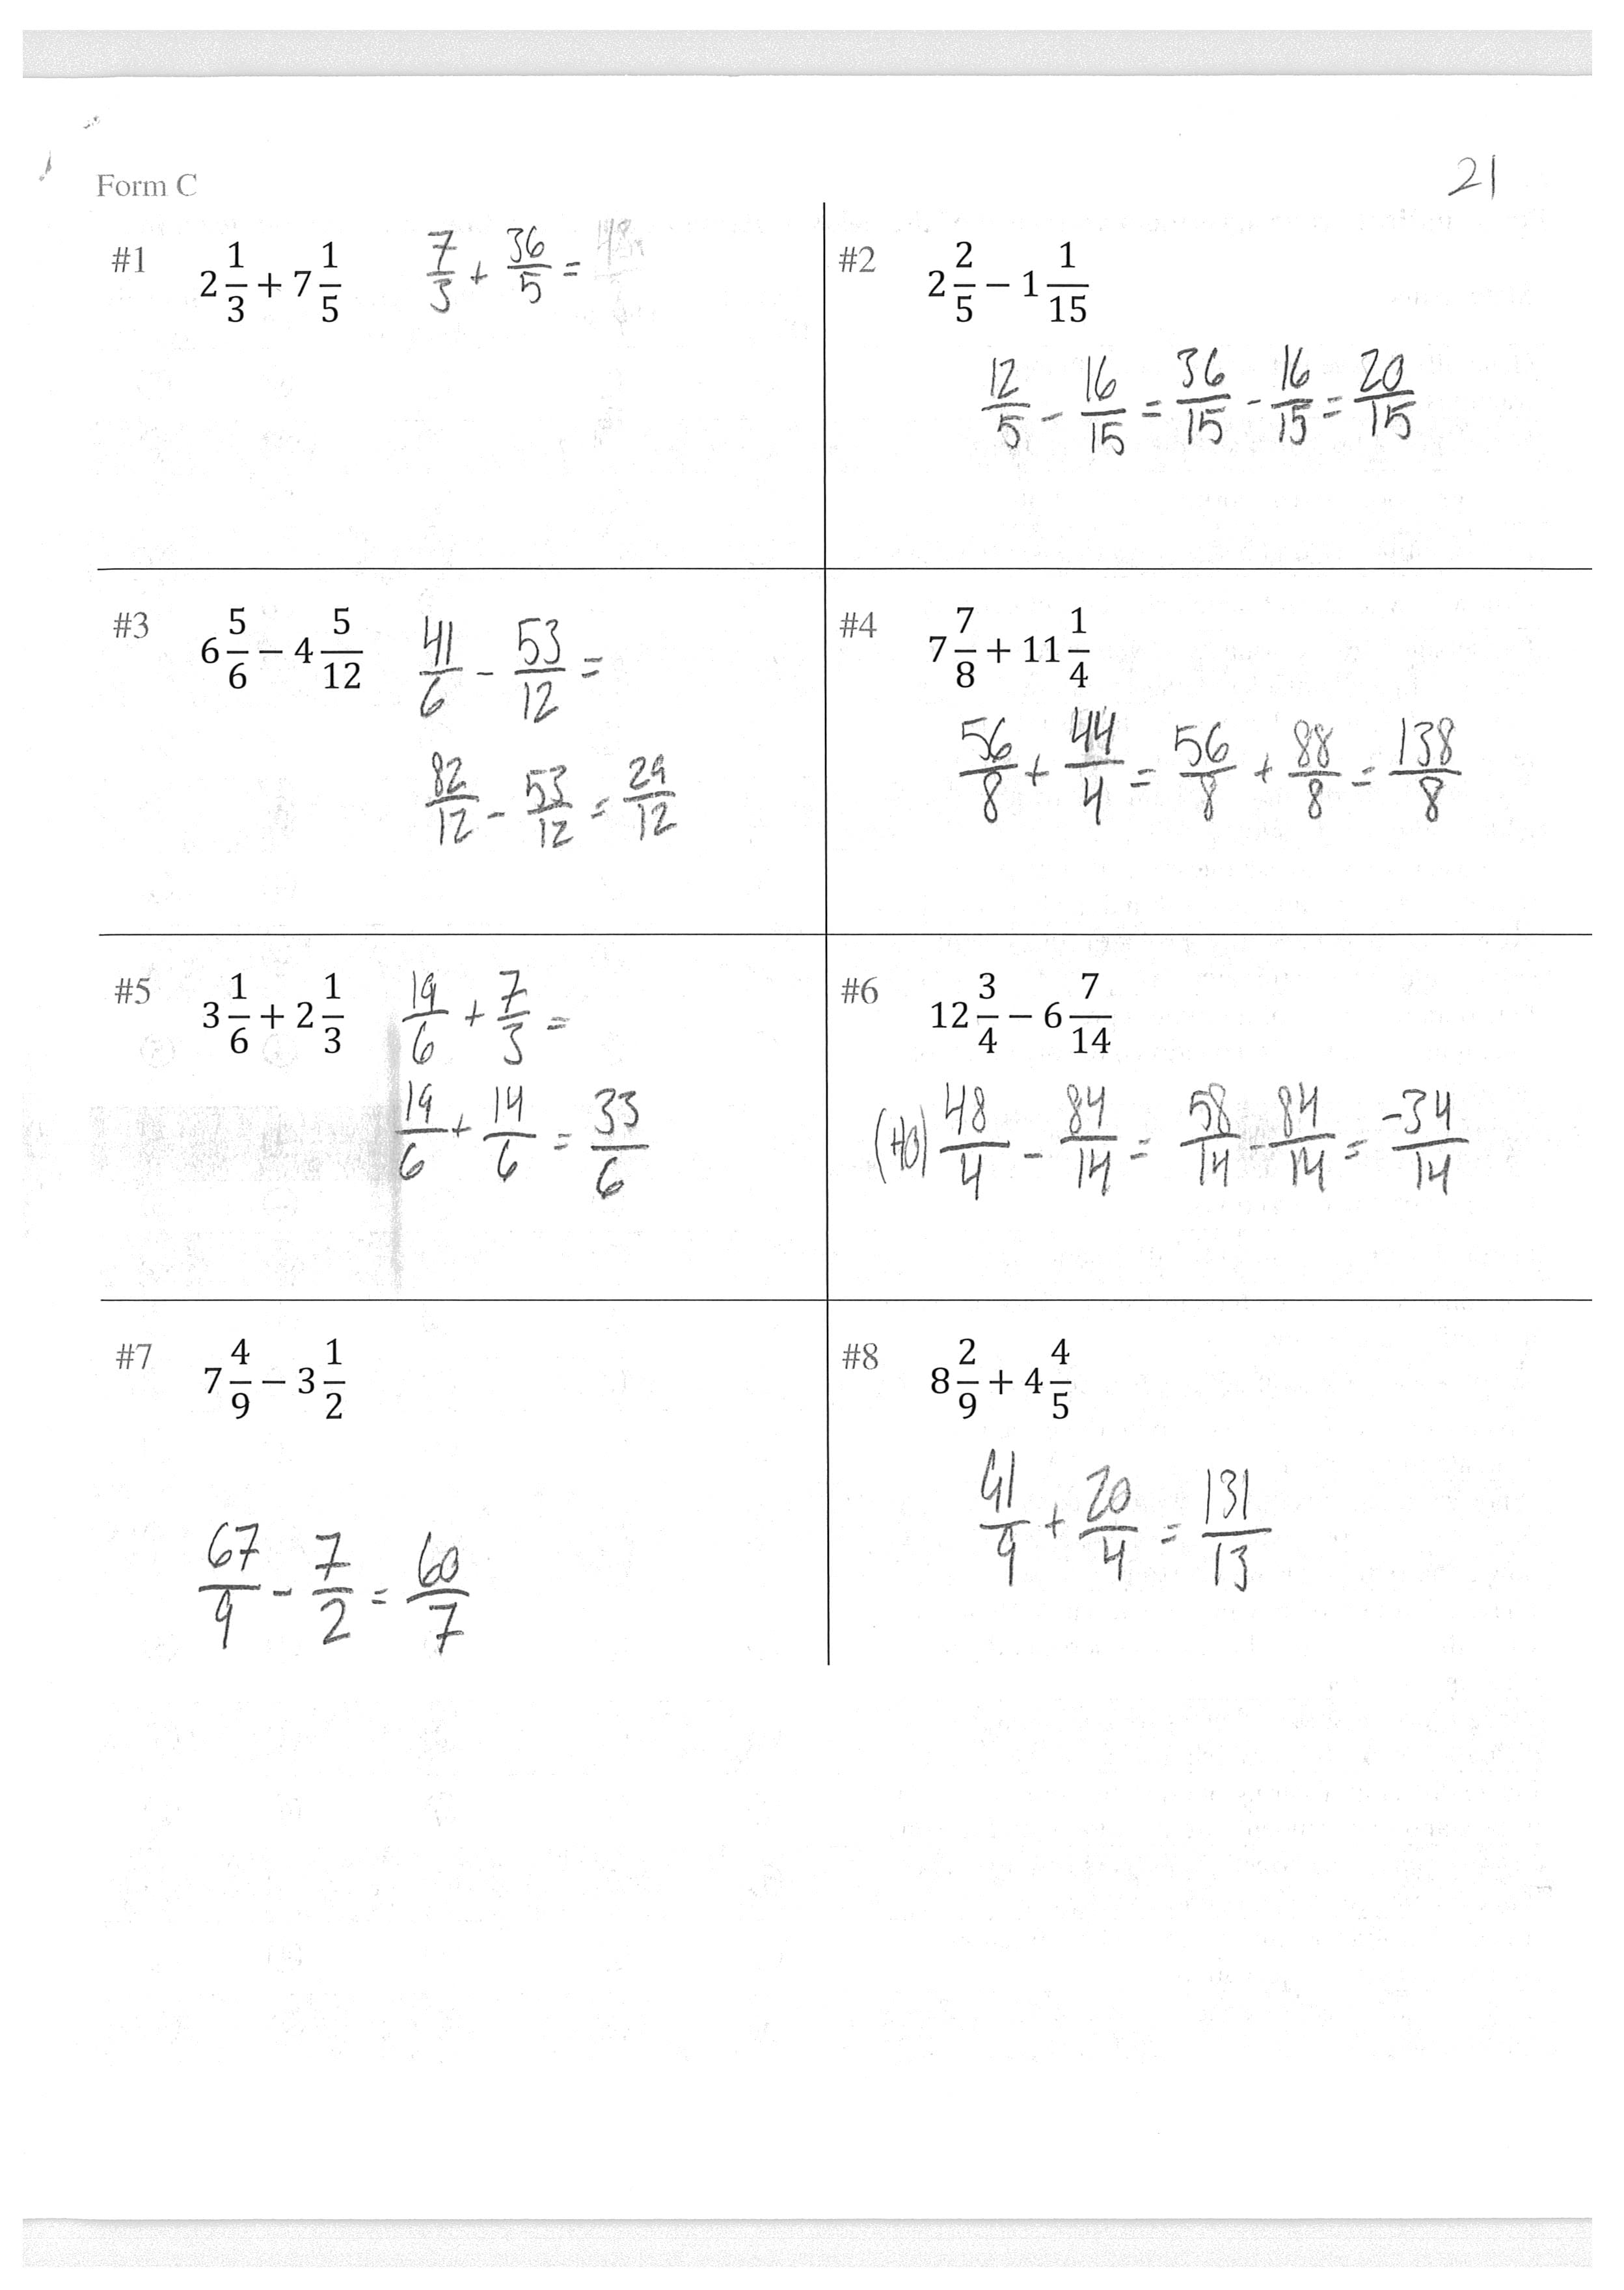 Form C
21
#1 2 1/3 + 7 1/5 7/3 + 36/5 =
#2 2 2/5 − 1 1/15
12/5 - 16/15 = 36/15 - 16/15 = 20/15
#3 6 5/6 − 4 5/12 41/6 - 53/12 =
82/12 - 53/12 = 29/12
#4 7 7/8 + 11 1/4
56/8 + 44/4 = 56/8 + 88/8 = 138/8
#5 3 1/6 + 2 1/3 19/6 + 7/3 =
19/6 + 14/6 = 33/6
#6 12 3/4 − 6 7/14
(+10) 48/4 - 84/14 = 58/14 - 84/14 = -34/14
#7 7 4/9 − 3 1/2
67/9 - 7/2 = 60/7
#8 8 2/9 + 4 4/5
/9 + 20/4 = 131/13